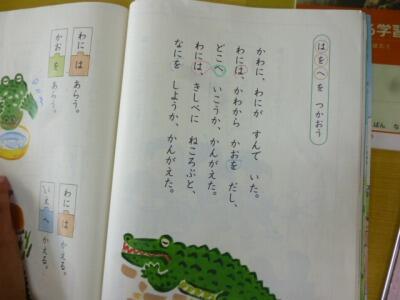 はをへを つかおう
かわに、わにが すんで いた。
わには、かわから かおを だし、
どこへ いこうか、かんがえた。
わには、きしべに ねころぶと、
なにを しようか、かんがえた。
わには あらう。
かおを あらう。
わには かえる。
いえへ かえる。
る学習